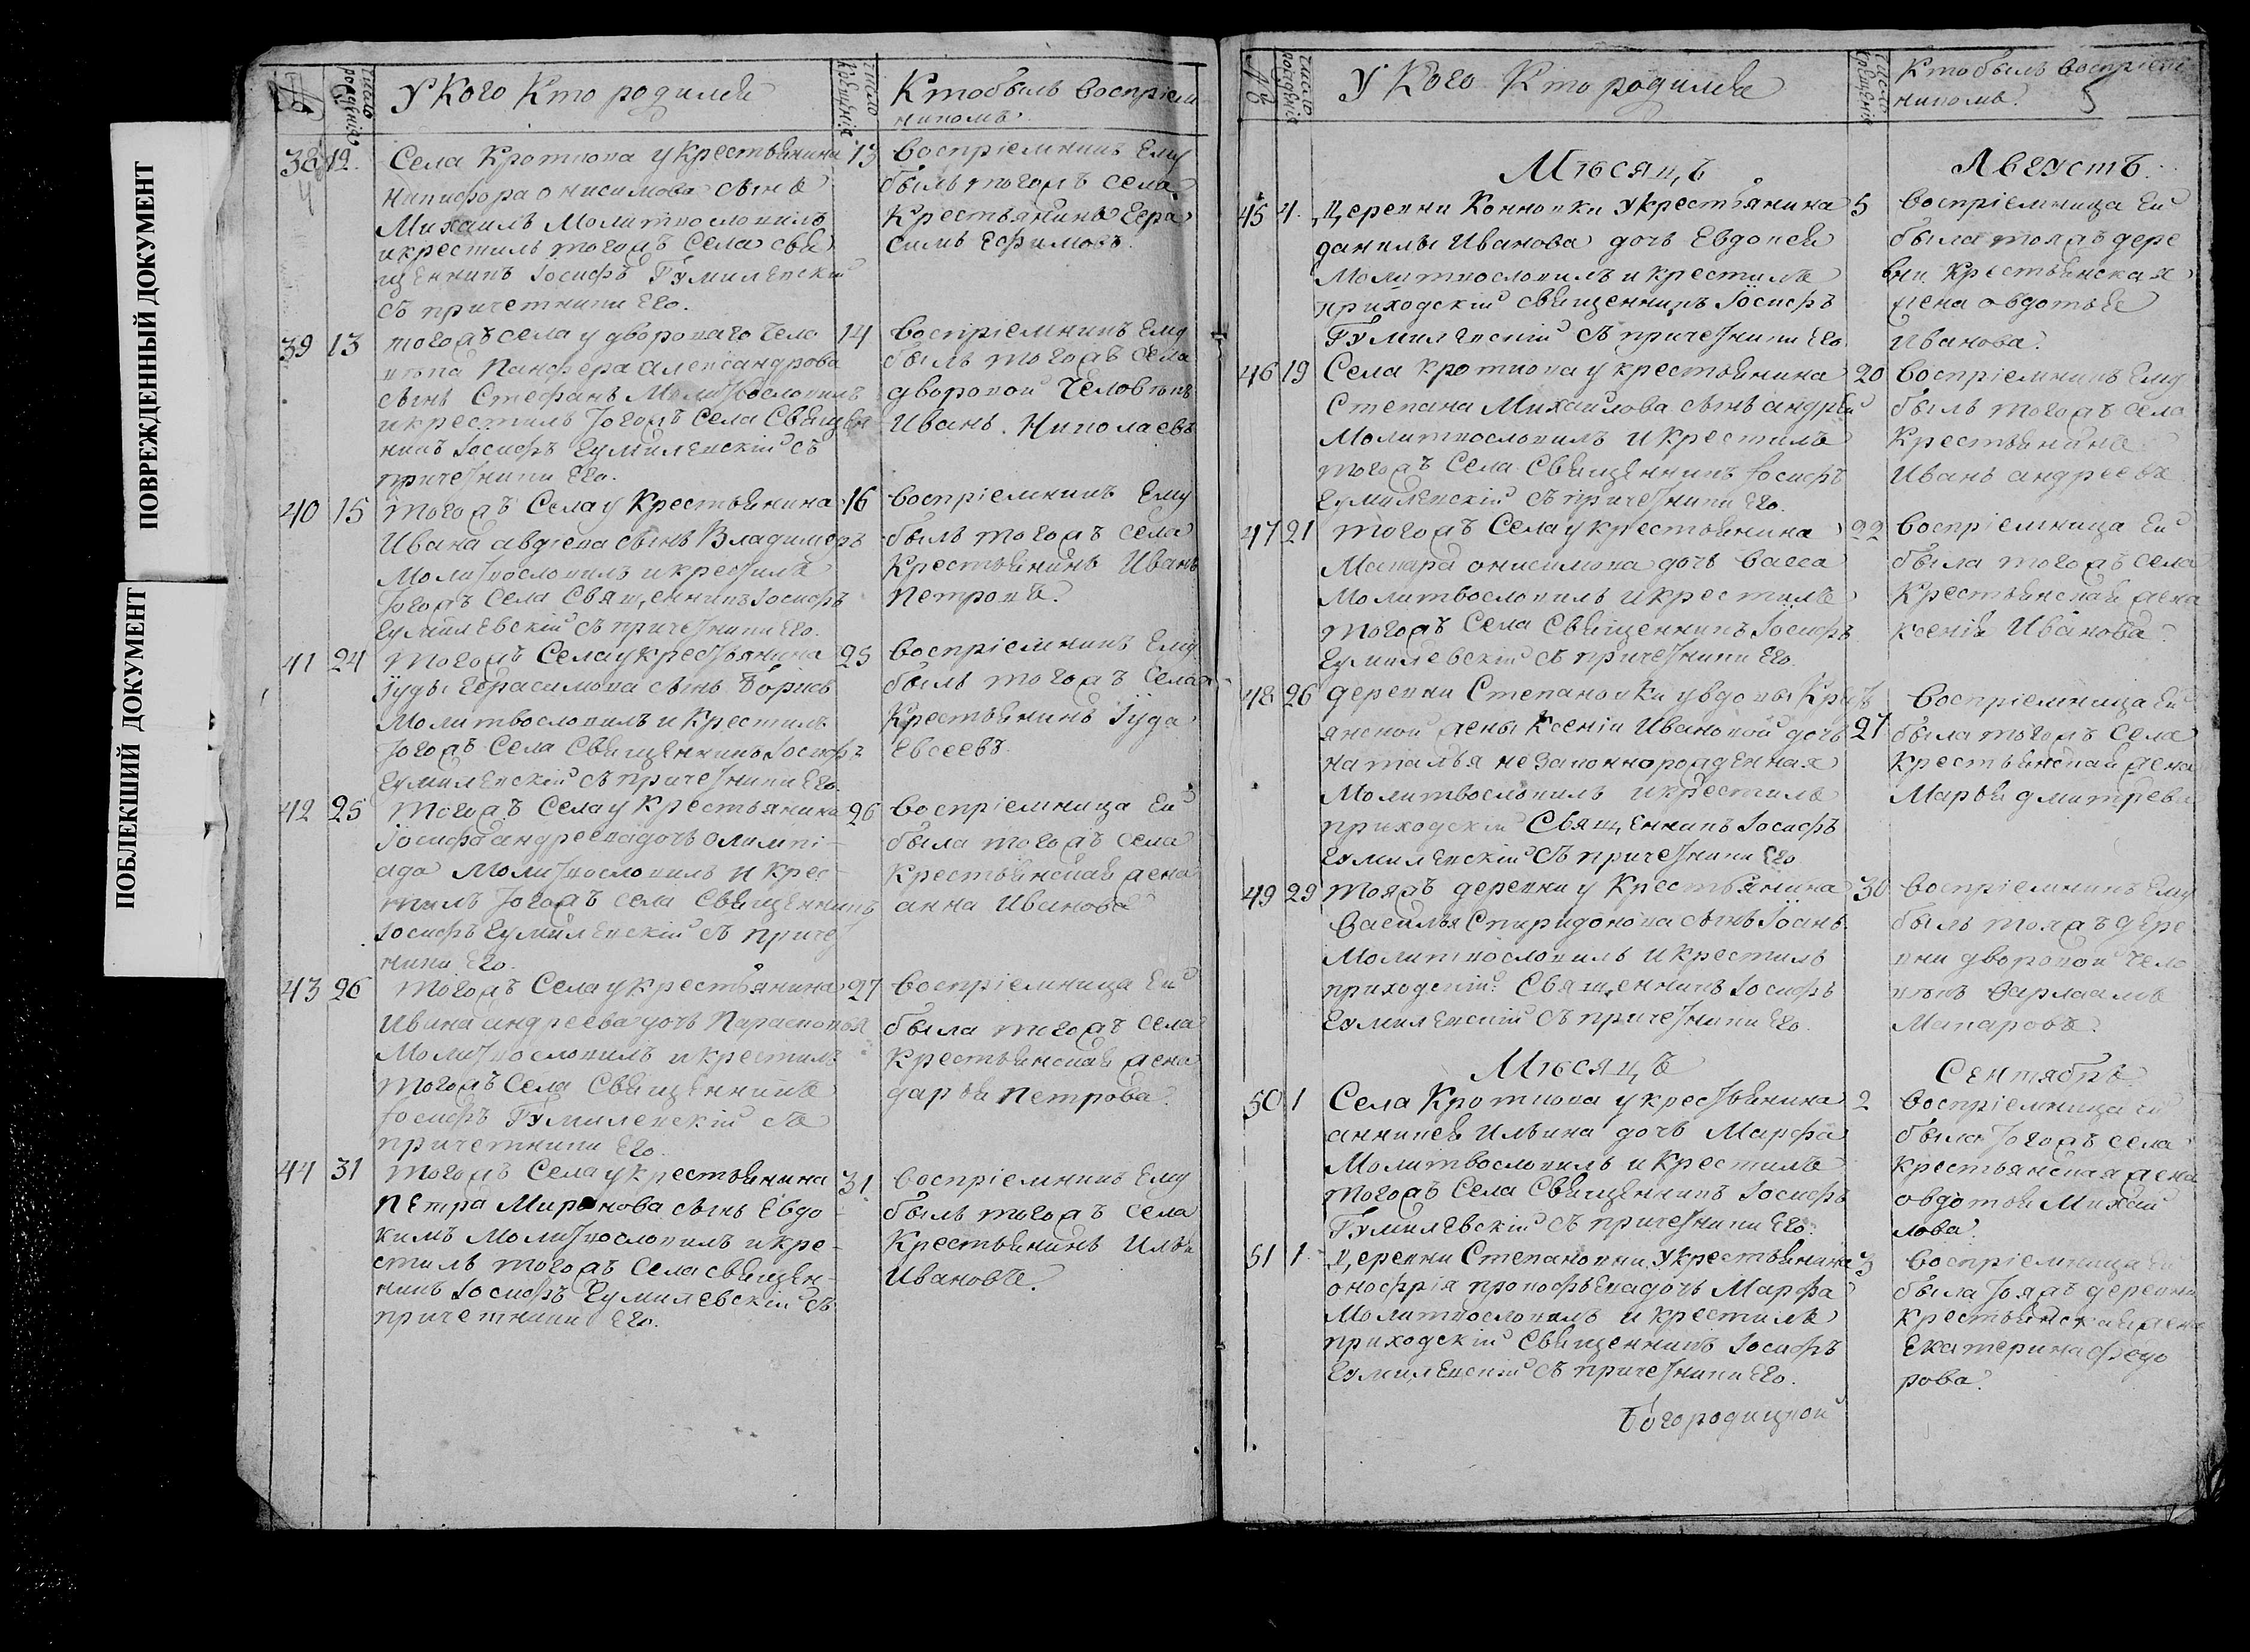 ПОВРЕЖДЕННЫЙ ДОКУМЕНТ
ПОБЛЕКШИЙ ДОКУМЕНТ
№
число рожденія
У Кого Кто родился
число крещенія
Кто былъ Воспріем
никомъ.
38 12. Села Кроткова у крестьянина 13
Никифора Онисимова сынъ
Михаилъ Молитвословилъ
и крестилъ тогожъ Села свя
щенникъ Іосифъ Гумилевскій
съ причетники Его.
Воспріемникъ Ему
былъ тогожъ села
Крестьянинъ Гера
симъ Ефимовъ.
39 13 тогожъ села у двороваго чело 14
века Панфера Александрова
сынъ Стефанъ Молитвословилъ
и крестилъ тогожъ Села Священ
никъ Іосифъ Гумилевскій съ
причетники Его.
Воспріемникъ Ему
былъ тогожъ села
дворовой Человѣкъ
Иванъ Николаевъ
40 15 тогожъ Села у Крестьянина 16
Ивана Авдіева сынъ Владимеръ
Молитвословилъ и крестилъ
тогожъ Села Священникъ Іосифъ
Гумилевскій съ причетники Его.
Воспріемникъ Ему
былъ тогожъ села
Крестьянинъ Иванъ
Петровъ.
41 24 тогожъ Села у крестьянина 25
Іуды Герасимова сынъ Борисъ
Молитвословилъ и Крестилъ
тогожъ Села Священникъ Іосифъ
Гумилевскій съ причетники Его.
Воспріемникъ Ему
былъ тогожъ Села
Крестьянинъ Іуда
Евсеевъ.
42 25 тогожъ Села у Крестьянина 26
Іосифа Андреева дочь Олимпі-
ада Молитвословилъ и крес-
тилъ тогожъ села Священникъ
Іосифъ Гумилевскій съ причет
ники Его.
Воспріемница Ей
была тогожъ села
Крестьянская жена
анна Иванова
43 26 тогожъ Села у крестьянина 27
Ивана андреева дочь Парасковья
Молитвословилъ и крестилъ
тогожъ Села Священникъ
Іосифъ Гумилевскій съ
причетники Его.
Воспріемница Ей
была тогожъ села
Крестьянская жена
дарья Петрова.
44 31 тогожъ Села у крестьянина 31
Петра Миронова сынъ Евдо-
кимъ Молитвословилъ и кре-
стилъ тогожъ Села священ-
никъ Іосифъ Гумилевскій съ
причетники Его.
Воспріемникъ Ему
былъ тогожъ села
Крестьянинъ Илья
Ивановъ.
№
число рожденія
У Кого Кто родился
число крещенія
Кто былъ Воспріем
никомъ. 5
Мѣсяцъ Августъ.
45 4. Деревни Конновки у крестьянина 5
данилы Иванова дочь Евдокея
Молитвословилъ и крестилъ
приходскій священникъ Іосифъ
Гумилевскій съ причетники Его.
Воспріемница Ей
была тояжъ дере
вни Крестьянская
жена овдотья
Иванова.
46 19 Села Кроткова у крестьянина 20
Степана Михаилова сынъ андрей
Молитвословилъ и крестилъ
тогожъ Села Священникъ Іосифъ
Гумилевскій съ причетники Его.
Воспріемникъ Ему
былъ тогожъ села
Крестьянинъ
Иванъ андреевъ
47 21 тогожъ Села у крестьянина 22
Макара онисимова дочь Васса
Молитвословилъ и крестилъ
тогожъ Села Священникъ Іосифъ
Гумилевскій съ причетники Его.
Воспріемница Ей
была тогожъ села
Крестьянская жена
Ксенія Иванова.
48 26 деревни Степановки у вдовы Крест
янской жены Ксеніи Ивановой дочь 27
наталья незаконнорожденная
Молитвословилъ и крестилъ
приходскій Священникъ Іосифъ
Гумилевскій съ причетники Его
Воспріемница Ей
была тогожъ села
Крестьянская жена
Марья дмитрева
49 29 тояжъ деревни у Крестьянина 30
Василья Спиридонова сынъ Іоанъ
Молитвословилъ и крестилъ
приходскій Священникъ Іосифъ
Гумилевскій съ причетники Его.
Воспріемникъ Ему
былъ тояжъ дере
вни дворовой чело
вѣкъ Варлаамъ
Макаровъ.
Мѣсяцъ Сентябрь
50 1 Села Кроткова у крестьянина 2
аникея Ильина дочь Марфа
Молитвословилъ и крестилъ
тогожъ Села Священникъ Іосифъ
Гумилевскій съ причетники Его.
Воспріемница Ей
была тогожъ села
Крестьянская жена
овдотья Михай
лова.
51 1 Деревни Степановки у крестьянина 3
онофрія прокофьева дочь Марфа
Молитвословилъ и крестилъ
приходскій Священникъ Іосифъ
Гумилевскій съ причетники Его.
Воспріемница Ей
была тояжъ деревни
Крестьянская жена
Екатерина федо
рова.
Богородицкой